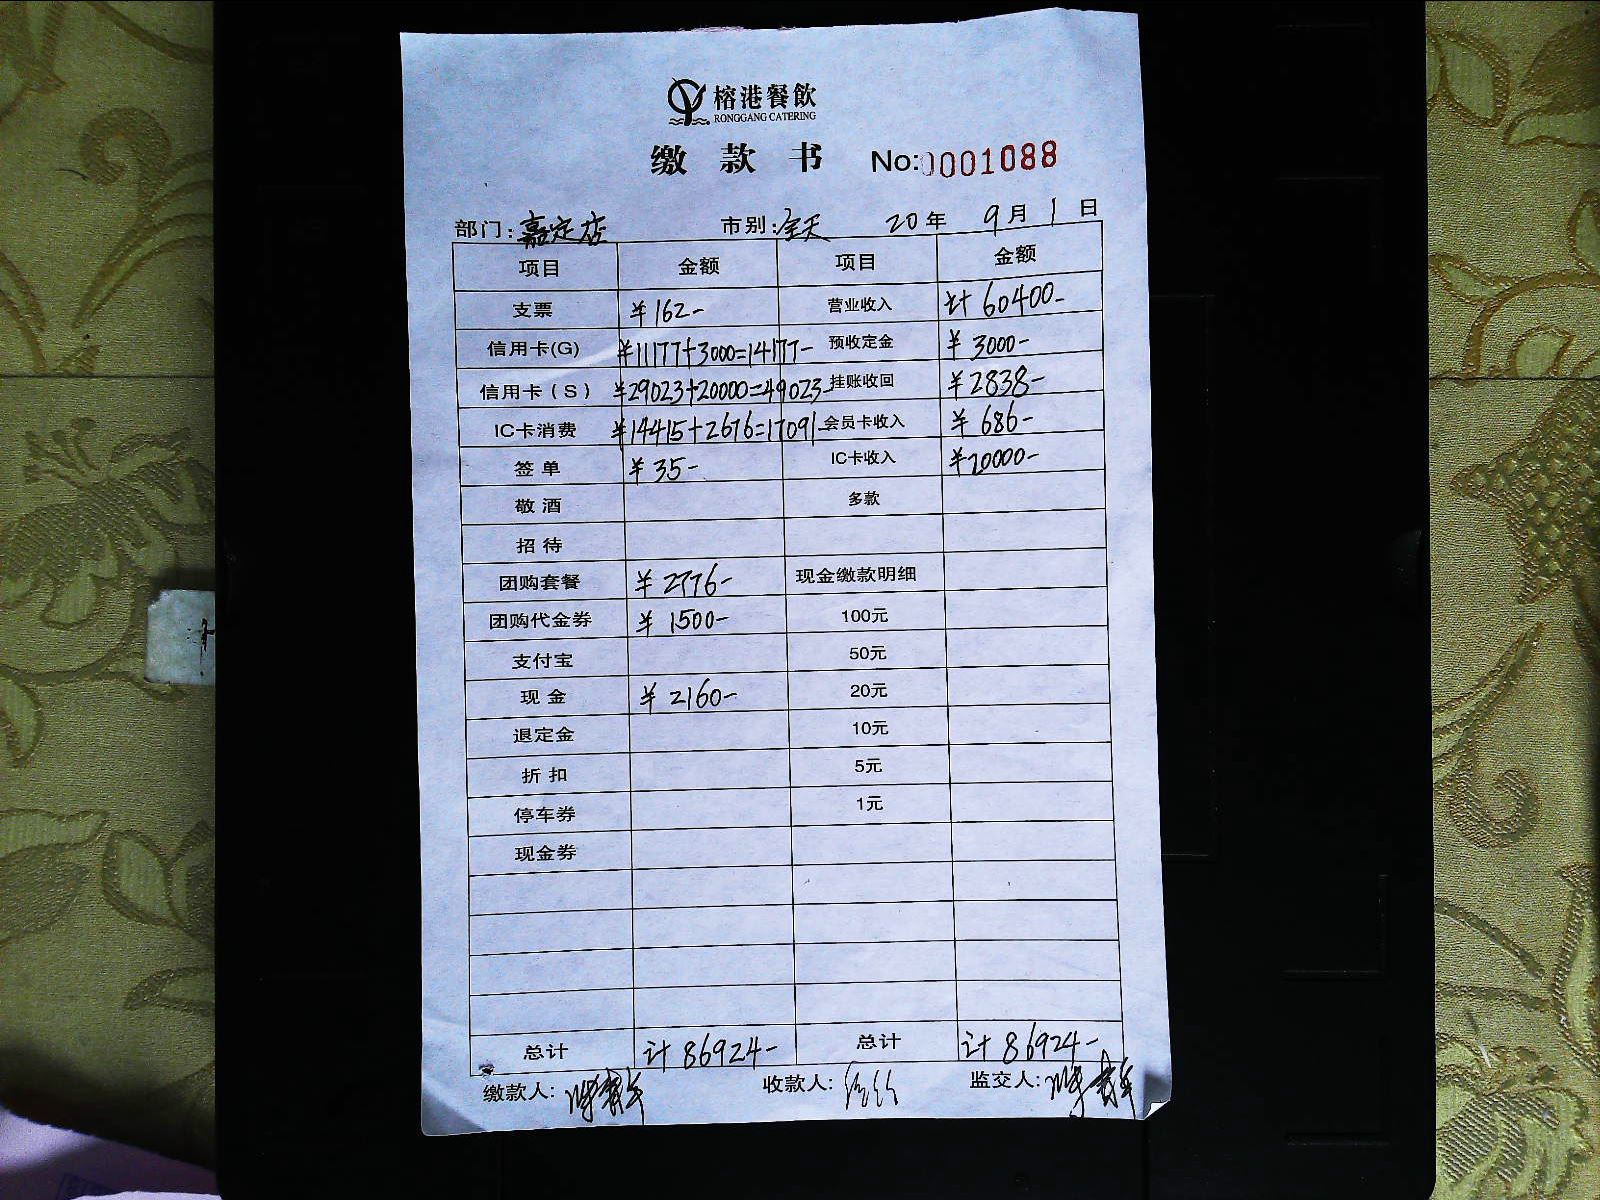 榕港餐飲
RONGGANG CATERING
缴款书 No:0001088
部门:嘉定店 市别:全天 20年 9月 1日
项目 金额 项目 金额
支票 ¥162- 营业收入 计60400-
信用卡(G) ¥11177+3000=14177- 预收定金 ¥3000-
信用卡(S) ¥29023+20000=49023- 挂账收回 ¥2838-
IC卡消费 ¥14415+2676=17091- 会员卡收入 ¥686-
签单 ¥35- IC卡收入 ¥20000-
敬酒 多款
招待
团购套餐 ¥2776- 现金缴款明细
团购代金券 ¥1500- 100元
支付宝 50元
现金 ¥2160- 20元
退定金 10元
折扣 5元
停车券 1元
现金券
总计 计86924- 总计 计86924-
缴款人: 收款人: 监交人: